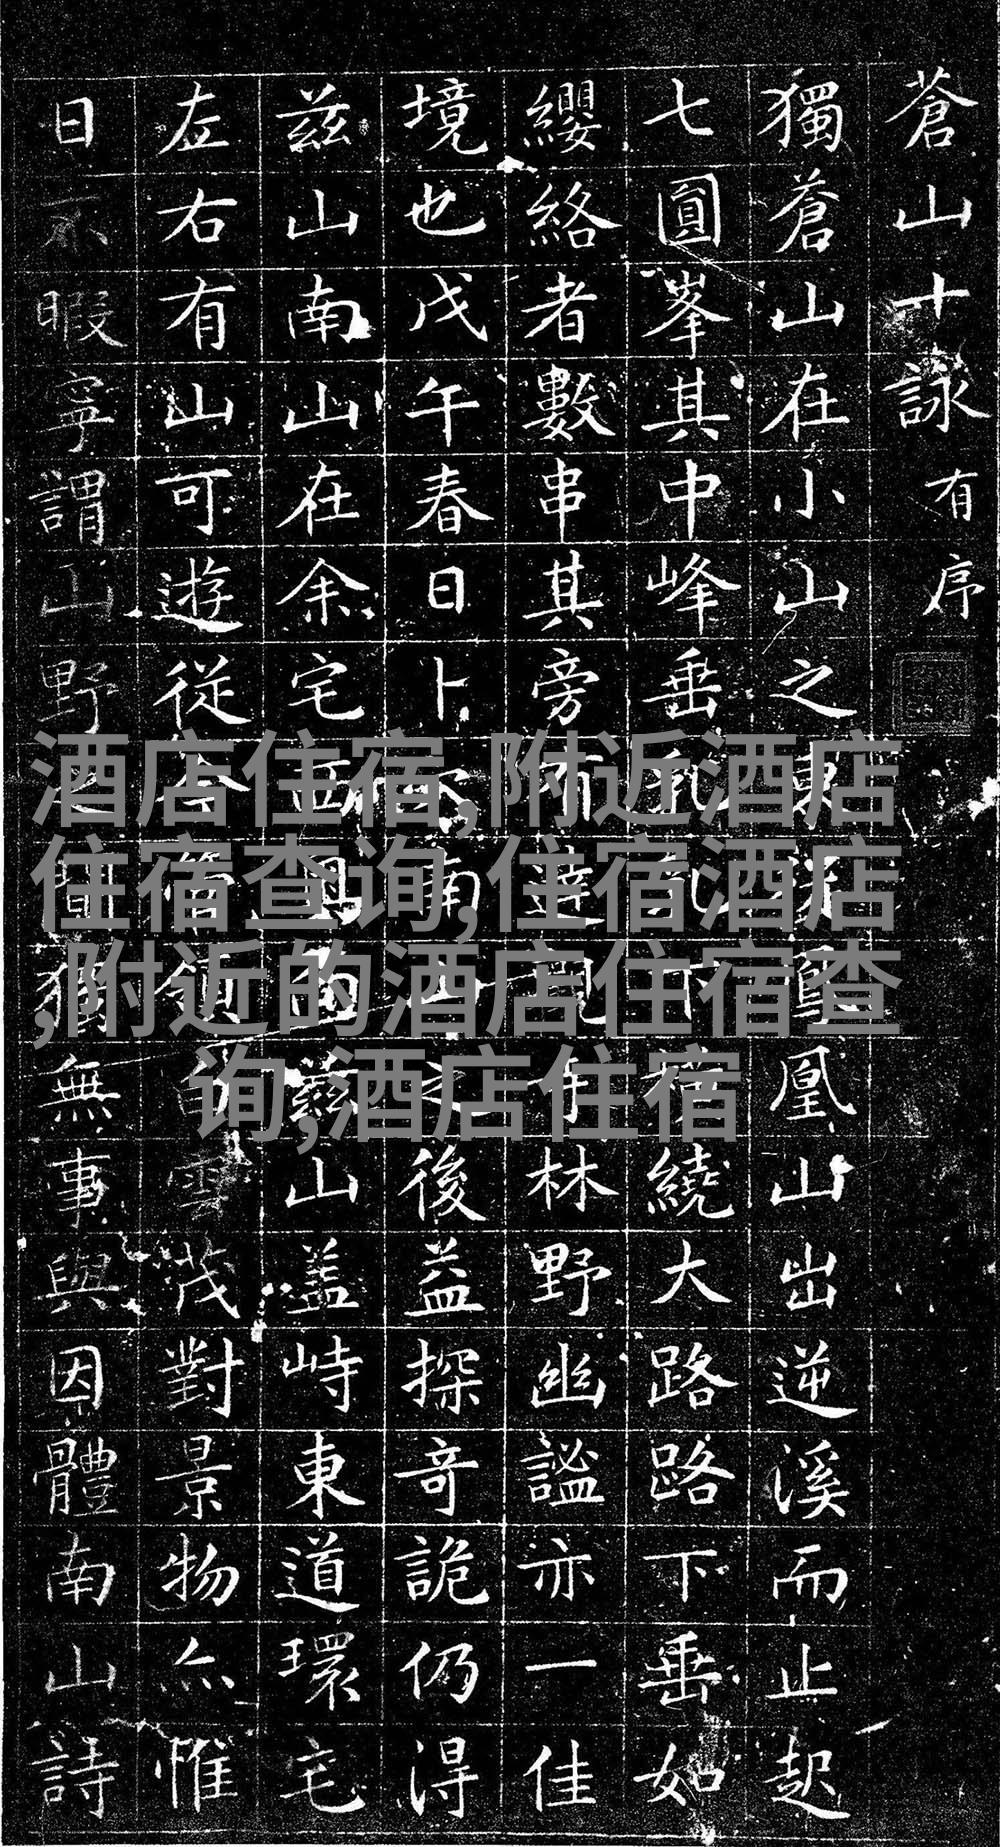 蒼山十詠有序
獨蒼山在小山之東溪鳳凰山出逆溪而止起
七圓峯其中峰垂乳繞大路路下垂如
纓絡者數串其旁林野幽謐亦一佳
境也戊午春日卜後益探奇詭仍得
茲山南山在余宅茲山盖峙東道環宅
左右有山可遊從雲茂對景物亦惟
日不暇寧謂山野無事與因體南山詩
酒店住宿,附近酒店
住宿查询,住宿酒店
,附近的酒店住宿查
询,酒店住宿